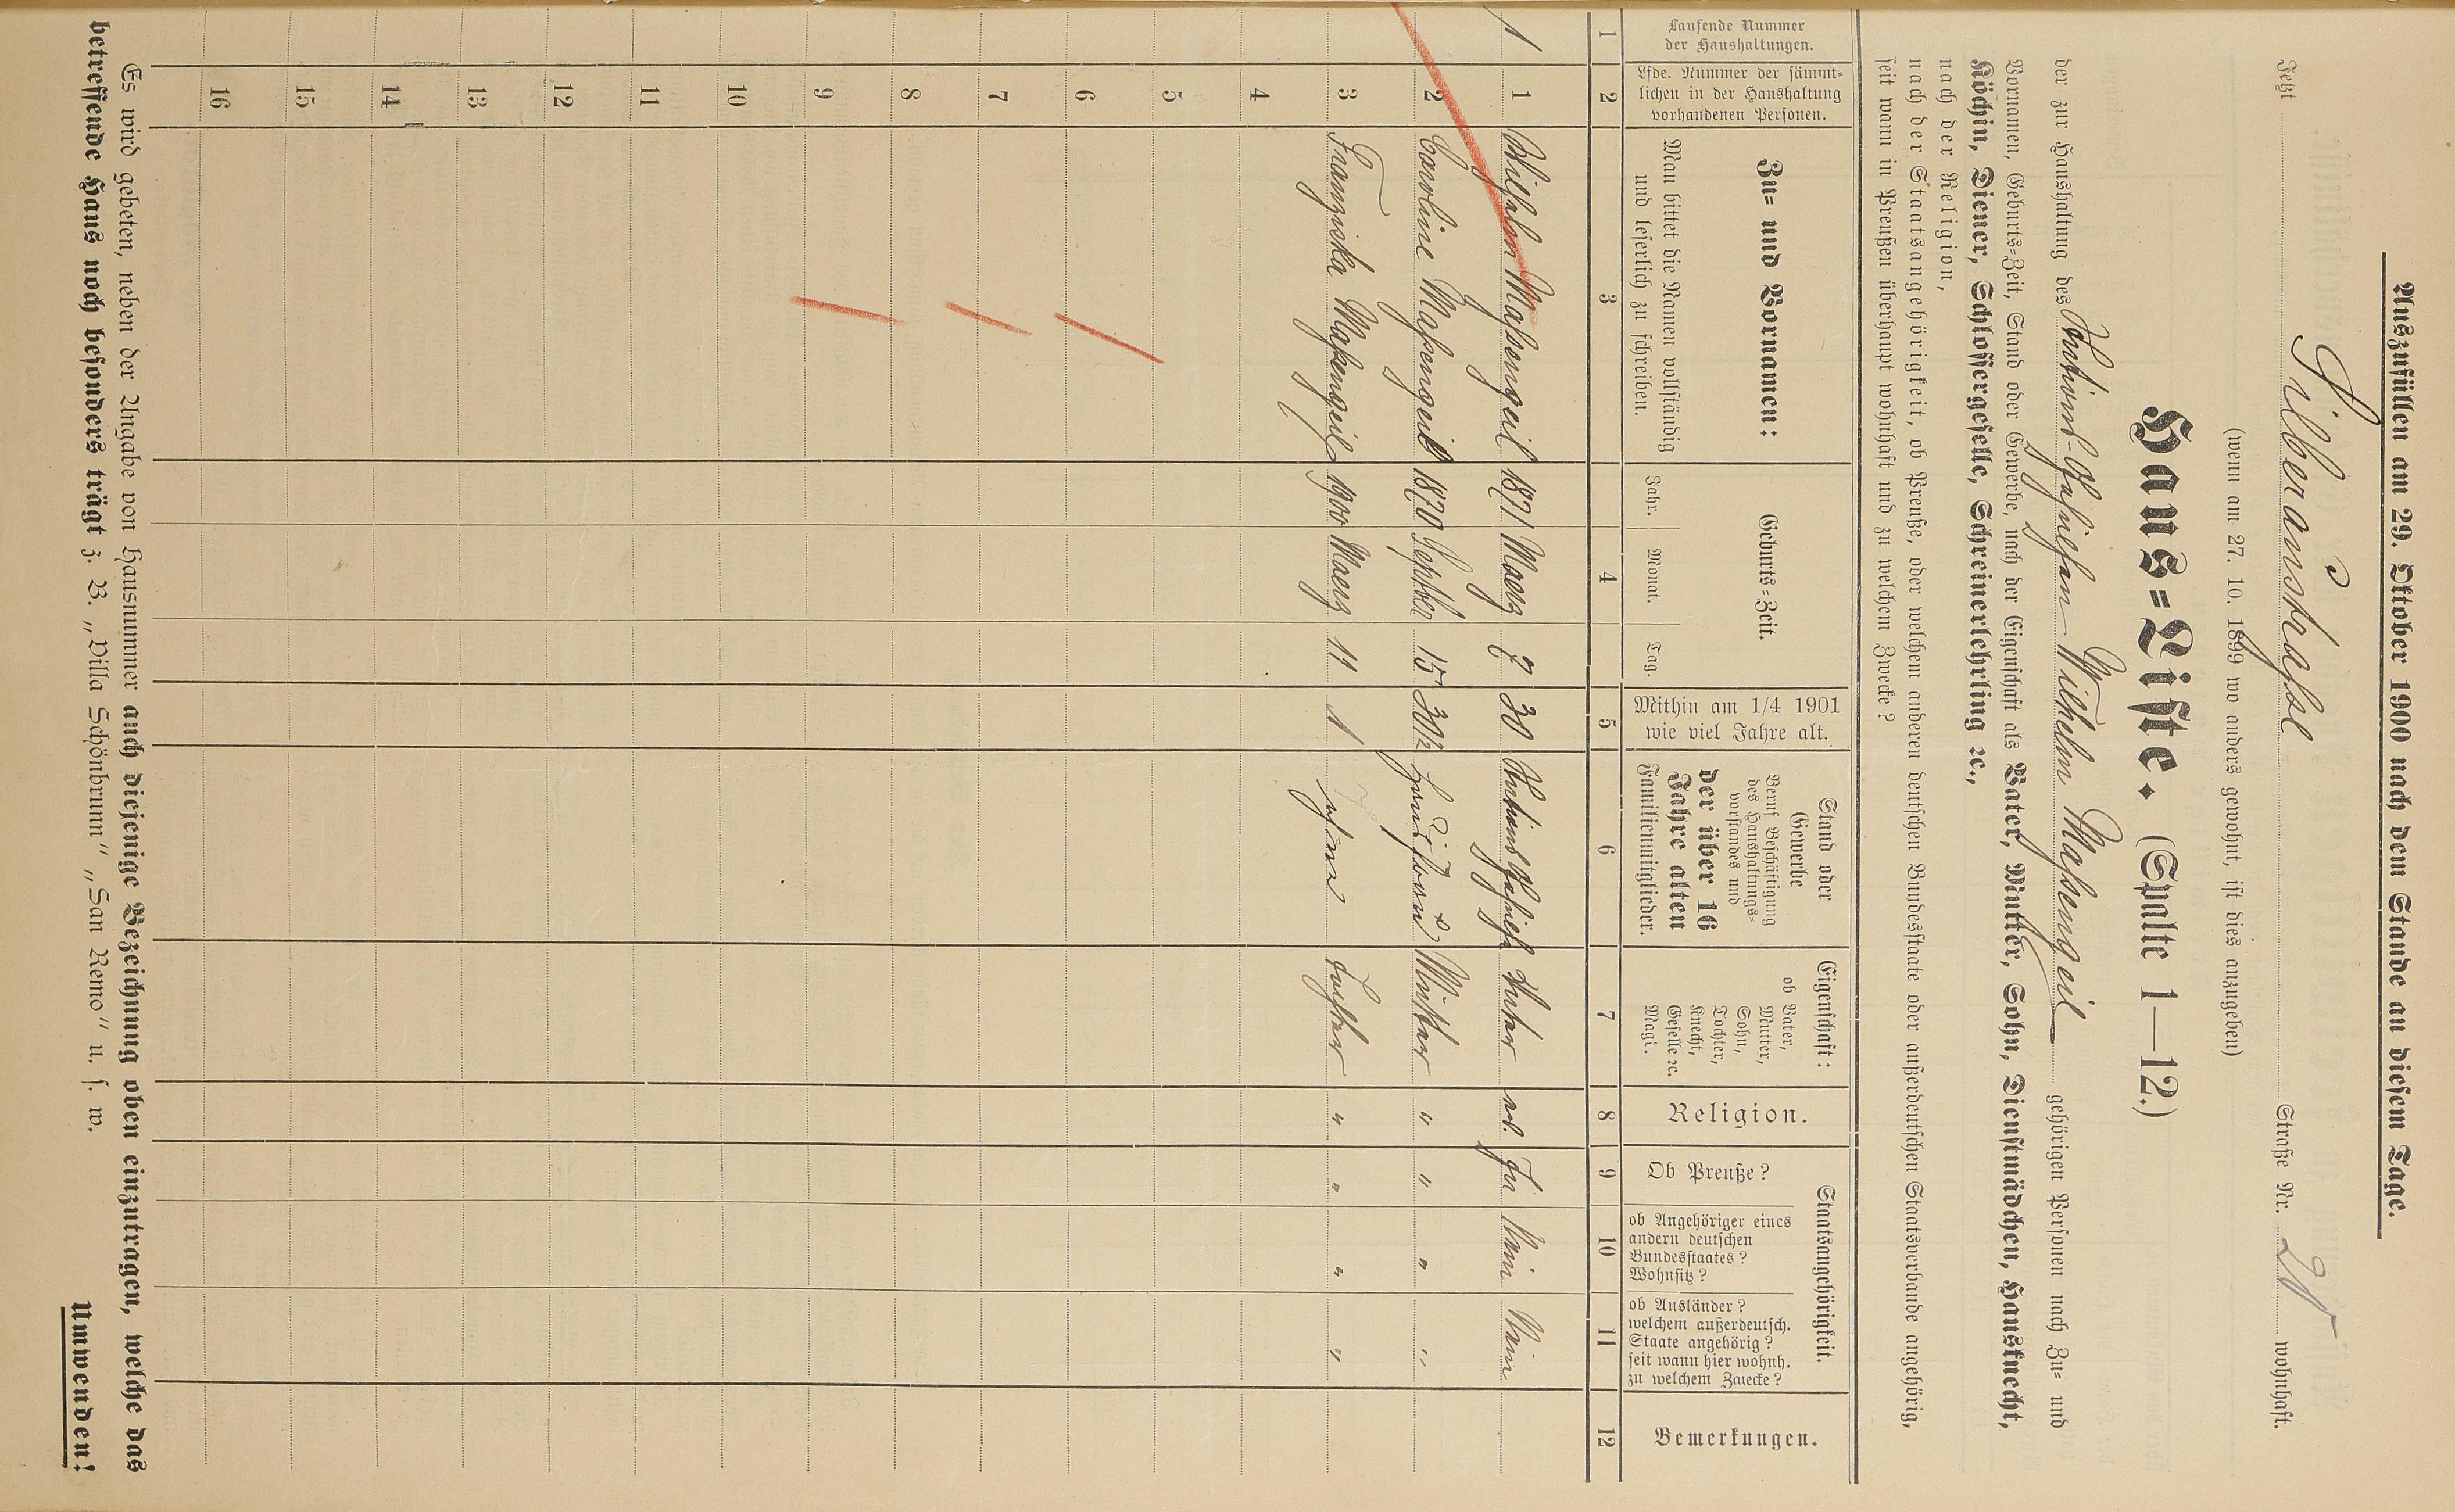 Auszufüllen am 29. Oktober 1900 nach dem Stande an diesem Tage.
Jetzt Silberaustraße Straße Nr. 20 wohnhaft.
(wenn am 27. 10. 1899 wo anders gewohnt, ist dies anzugeben)
Haus=Liste. (Spalte 1—12.)
der zur Haushaltung des Wilhelm Maßengeil gehörigen Personen nach Zu= und
Vornamen, Geburts=Zeit, Stand oder Gewerbe, nach der Eigenschaft als Vater, Mutter, Sohn, Dienstmädchen, Hausknecht,
Köchin, Diener, Schlossergeselle, Schreinerlehrling ec.,
nach der Religion,
nach der Staatsangehörigkeit, ob Preuße, oder welchen anderen deutschen Bundesstaate oder außerdeutschen Staatsverbande angehörig,
seit wann in Preußen überhaupt wohnhaft und zu welchem Zwecke?
Laufende Nummer
der Haushaltungen.
Lfde. Nummer der sämmt=
lichen in der Haushaltung
vorhandenen Personen.
Zu= und Vornamen:
Man bittet die Namen vollständig
und leserlich zu schreiben.
Geburts=Zeit.
Jahr. Monat. Tag.
Mithin am 1/4 1901
wie viel Jahre alt.
Stand oder
Gewerbe
Beruf Beschäftigung
des Haushaltungs=
vorstandes und
der über 16
Jahre alten
Familienmitglieder.
Eigenschaft:
ob Vater,
Mutter,
Sohn,
Tochter,
Knecht,
Geselle ec.
Magd.
Religion.
Staatsangehörigkeit.
Ob Preuße?
ob Angehöriger eines
andern deutschen
Bundesstaates?
Wohnsitz?
ob Ausländer?
welchem außerdeutsch.
Staate angehörig?
seit wann hier wohnh.
zu welchem Zwecke?
Bemerkungen.
1 2 3 4 5 6 7 8 9 10 11 12
1 1 Wilhelm Maßengeil 1871 Maerz 7 30 Vater Ja Nein Nein
2 Caroline Maßengeil 1870 Septber 15 30½ Mutter " " " "
3 Franziska Maßengeil 1900 Maerz 11 1 ohne Tochter " " " "
4
5
6
7
8
9
10
11
12
13
14
15
16
Es wird gebeten, neben der Angabe von Hausnummer auch diejenige Bezeichnung oben einzutragen, welche das
betreffende Haus noch besonders trägt z. B. „Villa Schönbrunn“ „San Remo“ u. s. w.
Umwenden!